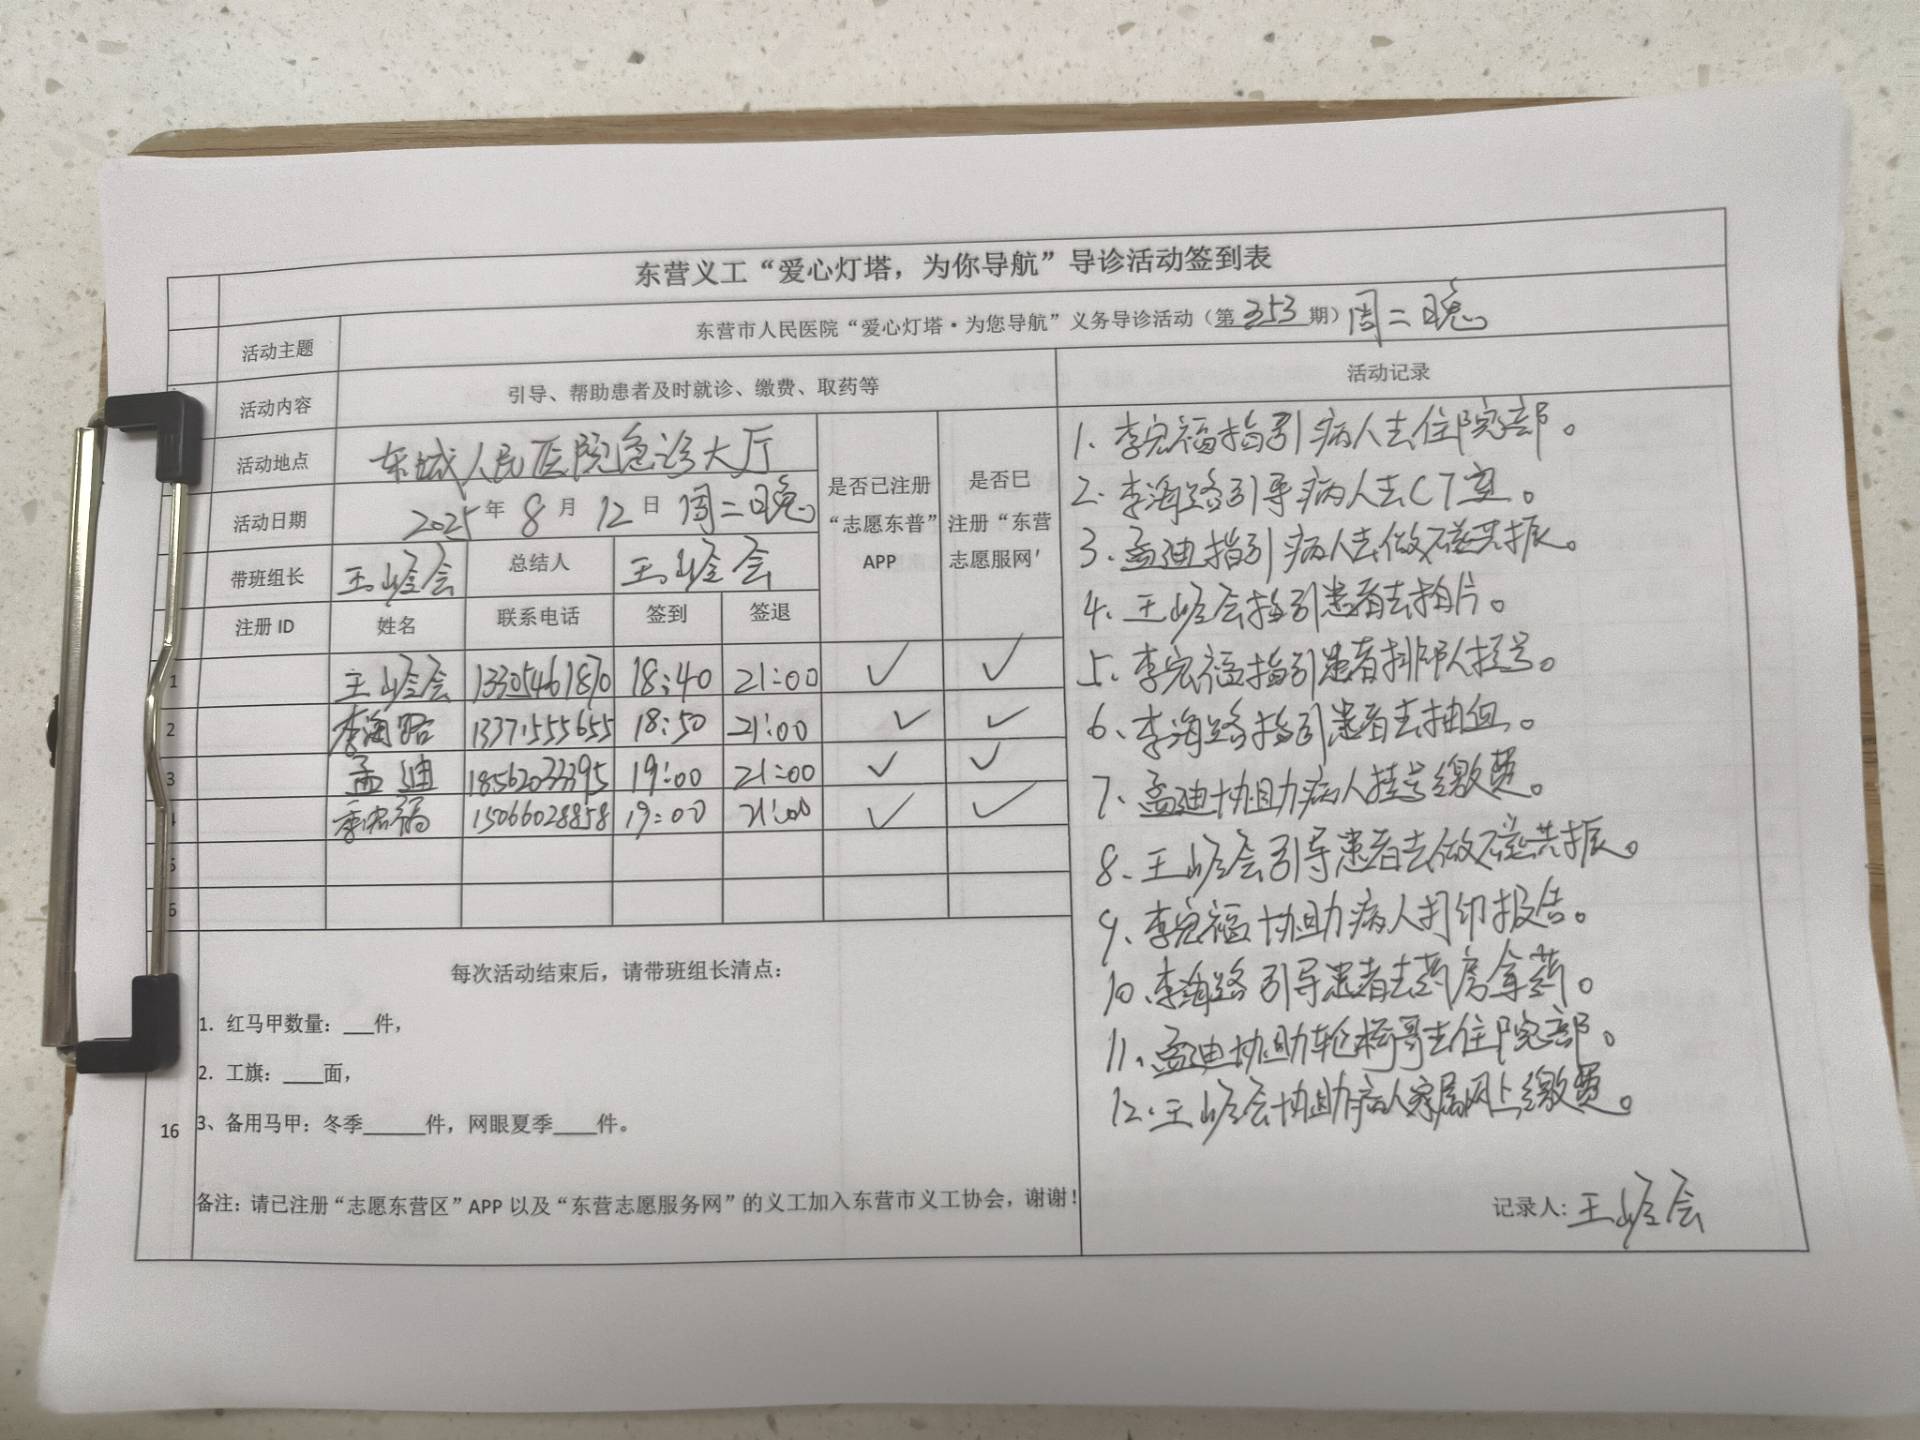 东营义工“爱心灯塔，为你导航”导诊活动签到表
活动主题 东营市人民医院“爱心灯塔·为您导航”义务导诊活动（第353期）周二晚
活动内容 引导、帮助患者及时就诊、缴费、取药等 活动记录
活动地点 东城人民医院急诊大厅
活动日期 2025年8月12日周二晚
是否已注册“志愿东普”APP
是否已注册“东营志愿服网'
带班组长 王峪会 总结人 王峪会
注册ID 姓名 联系电话 签到 签退
1 王峪会 13305461870 18:40 21:00 ✓ ✓
2 李海路 13371555655 18:50 21:00 ✓ ✓
3 孟迪 18562033395 19:00 21:00 ✓ ✓
4 李宏福 15066028858 19:00 21:00 ✓ ✓
5
6
每次活动结束后，请带班组长清点：
1. 红马甲数量：___件，
2. 工旗：____面，
16 3、备用马甲：冬季______件，网眼夏季____件。
备注：请已注册“志愿东营区”APP 以及“东营志愿服务网”的义工加入东营市义工协会，谢谢！
1、李宏福指引病人去住院部。
2、李海路引导病人去CT室。
3、孟迪指引病人去做磁共振。
4、王峪会指引患者去拍片。
5、李宏福指引患者排队挂号。
6、李海路指引患者去抽血。
7、孟迪协助病人挂号缴费。
8、王峪会引导患者去做磁共振。
9、李宏福协助病人打印报告。
10、李海路引导患者去药房拿药。
11、孟迪协助轮椅哥去住院部。
12、王峪会协助病人家属网上缴费。
记录人：王峪会